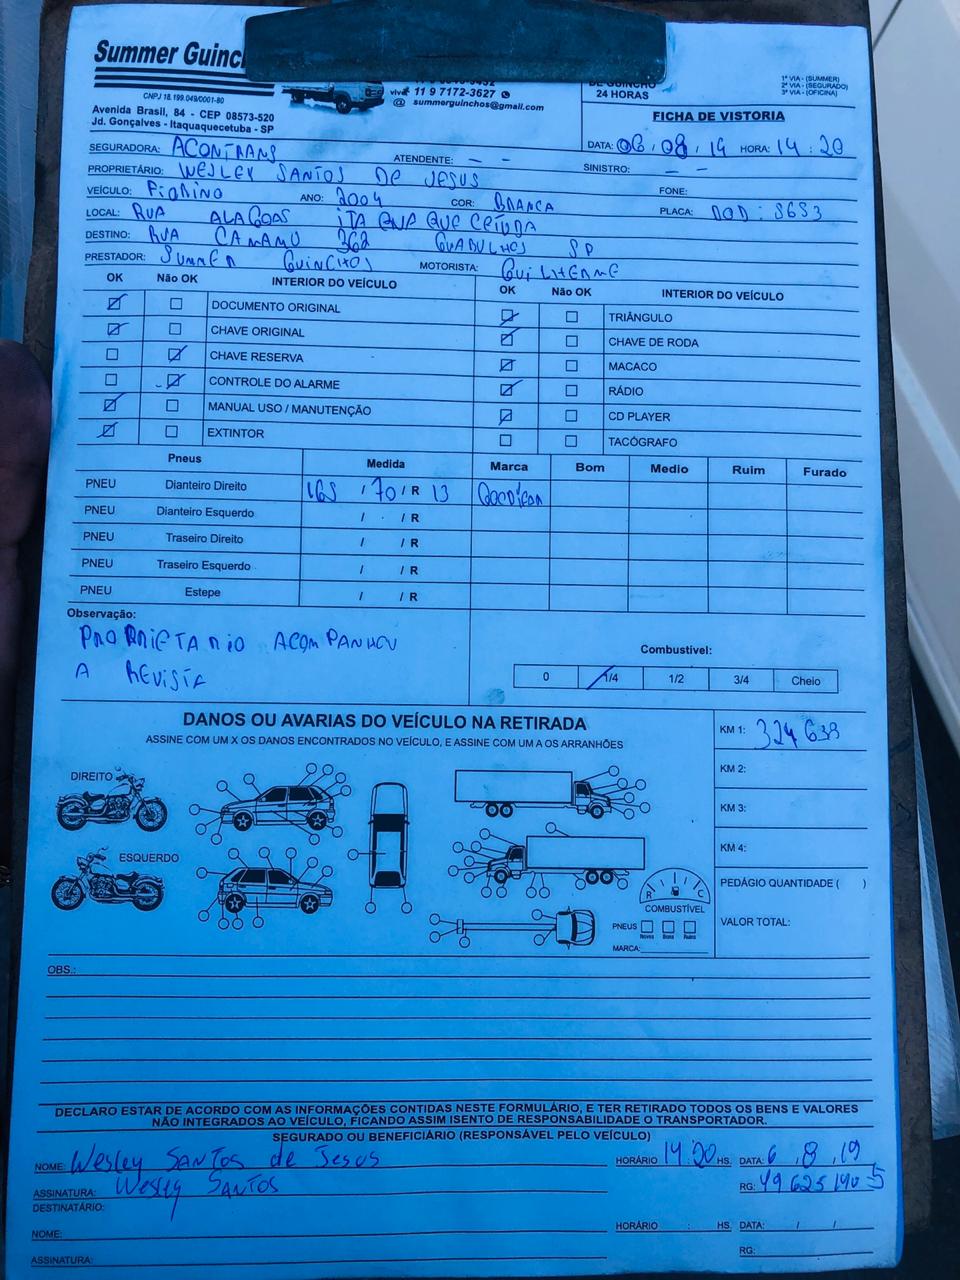 Summer Guinc
CNPJ 18.199.049/0001-80
Avenida Brasil, 84 - CEP 08573-520
Jd. Gonçalves - Itaquaquecetuba - SP
vivo 11 9 7172-3627
@ summerguinchos@gmail.com
DE GUINCHO
24 HORAS
1ª VIA - (SUMMER)
2ª VIA - (SEGURADO)
3ª VIA - (OFICINA)
FICHA DE VISTORIA
SEGURADORA: ACONTRANS ATENDENTE: - - DATA: 06/08/19 HORA: 14:20
PROPRIETÁRIO: WESLEY SANTOS DE JESUS SINISTRO: - -
VEÍCULO: FIORINO ANO: 2004 COR: BRANCA FONE:
LOCAL: RUA ALAGOAS ITAQUAQUECETUBA PLACA:
DESTINO: RUA CAMAMU 362 GUARULHOS SP
PRESTADOR: SUMMER GUINCHOS MOTORISTA: GUILHERME
OK Não OK INTERIOR DO VEÍCULO OK Não OK INTERIOR DO VEÍCULO
DOCUMENTO ORIGINAL TRIÂNGULO
CHAVE ORIGINAL CHAVE DE RODA
CHAVE RESERVA MACACO
CONTROLE DO ALARME RÁDIO
MANUAL USO / MANUTENÇÃO CD PLAYER
EXTINTOR TACÓGRAFO
Pneus Medida Marca Bom Medio Ruim Furado
PNEU Dianteiro Direito 165 / 70 / R 13
PNEU Dianteiro Esquerdo / / R
PNEU Traseiro Direito / / R
PNEU Traseiro Esquerdo / / R
PNEU Estepe / / R
Observação:
PROPRIETARIO ACOMPANHOU
A REVISTA
Combustível:
0 1/4 1/2 3/4 Cheio
DANOS OU AVARIAS DO VEÍCULO NA RETIRADA
ASSINE COM UM X OS DANOS ENCONTRADOS NO VEÍCULO, E ASSINE COM UM A OS ARRANHÕES
KM 1: 324 638
KM 2:
KM 3:
KM 4:
PEDÁGIO QUANTIDADE ( )
VALOR TOTAL:
DIREITO
ESQUERDO
R C
COMBUSTÍVEL
PNEUS
Novos Bons Ruins
MARCA:
OBS.:
DECLARO ESTAR DE ACORDO COM AS INFORMAÇÕES CONTIDAS NESTE FORMULÁRIO, E TER RETIRADO TODOS OS BENS E VALORES
NÃO INTEGRADOS AO VEÍCULO, FICANDO ASSIM ISENTO DE RESPONSABILIDADE O TRANSPORTADOR.
SEGURADO OU BENEFICIÁRIO (RESPONSÁVEL PELO VEÍCULO)
NOME: Wesley Santos de Jesus HORÁRIO 14:20 HS. DATA: 6/8/19
ASSINATURA: Wesley Santos RG: 49625140 5
DESTINATÁRIO:
NOME: HORÁRIO : HS. DATA: / /
ASSINATURA: RG: